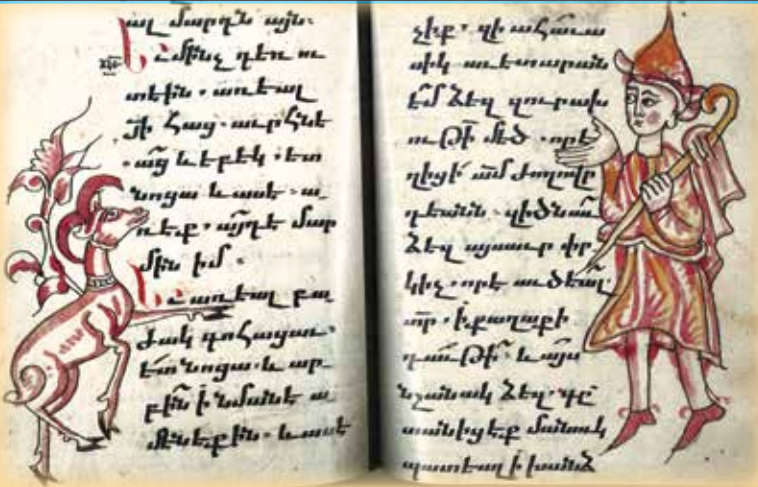 ալ մարդն այն։
Եւ մինչ դեռ ու
տէին. առեալ
Յի հաց. աւրհնե
աց և եբեկ. ետ
նոցա և ասէ. ա
ռէք. այդ է մար
մին իմ.
Եւ առեալ բա
ժակ գոհացաւ.
ետ նոցա. և ար
բին ի նմանէ ա
մենեքին. և ասէ
չիք. զի ահաւա
սիկ աւետարան
եմ ձեզ զուրախ
ութի մեծ. որ ե
ղիցի ամ ժողովր
դեանն. զի ծնաւ
ձեզ այսաւր փր
կիչ. որ է աւծեալ
տր. ի քաղաքի
դաւթի. և այս
նշանակ ձեզ. գտ
տանիցէք մանուկ
պատեալ ի խանձ